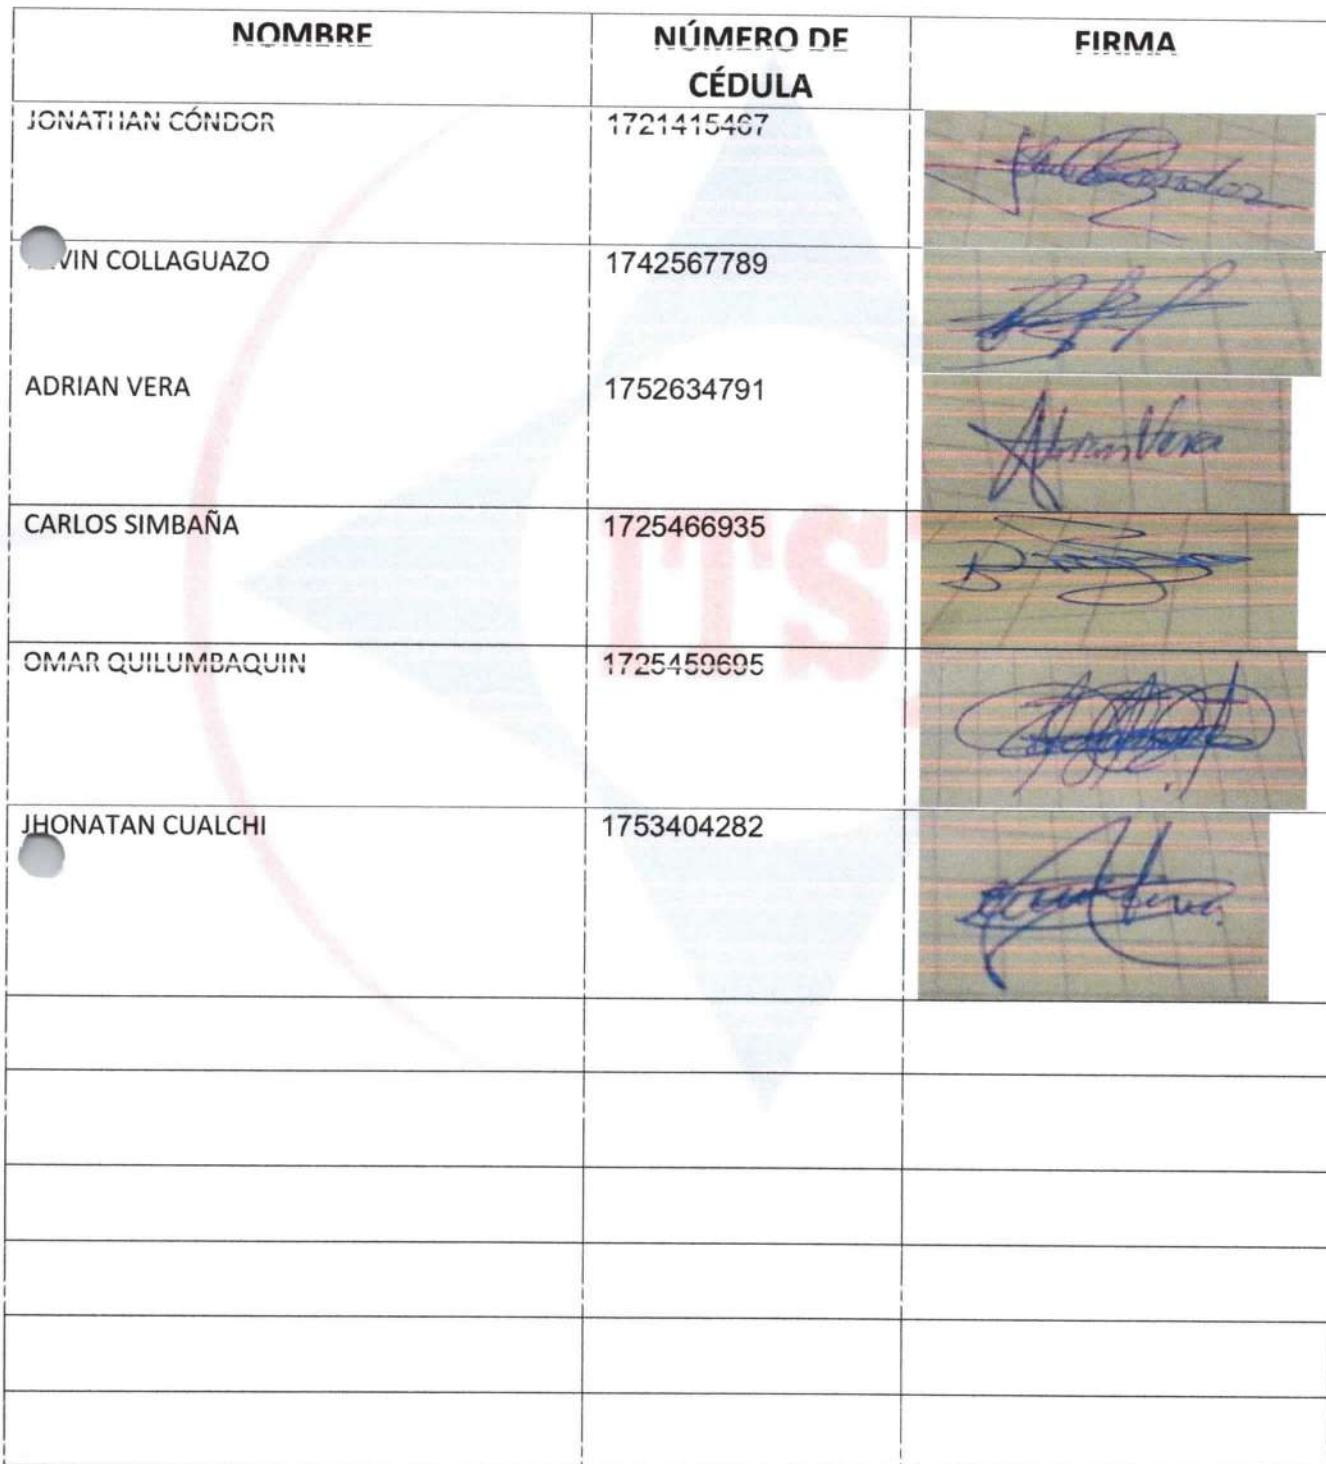 NOMBRE NÚMERO DE CÉDULA FIRMA
JONATHAN CÓNDOR 1721415467
VIN COLLAGUAZO 1742567789
ADRIAN VERA 1752634791 Adrian Vera
CARLOS SIMBAÑA 1725466935
OMAR QUILUMBAQUIN 1725459695
JHONATAN CUALCHI 1753404282
ITS